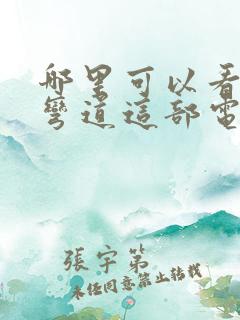 哪里可以看
彎道這部電
張宇第
未经同意禁止转载